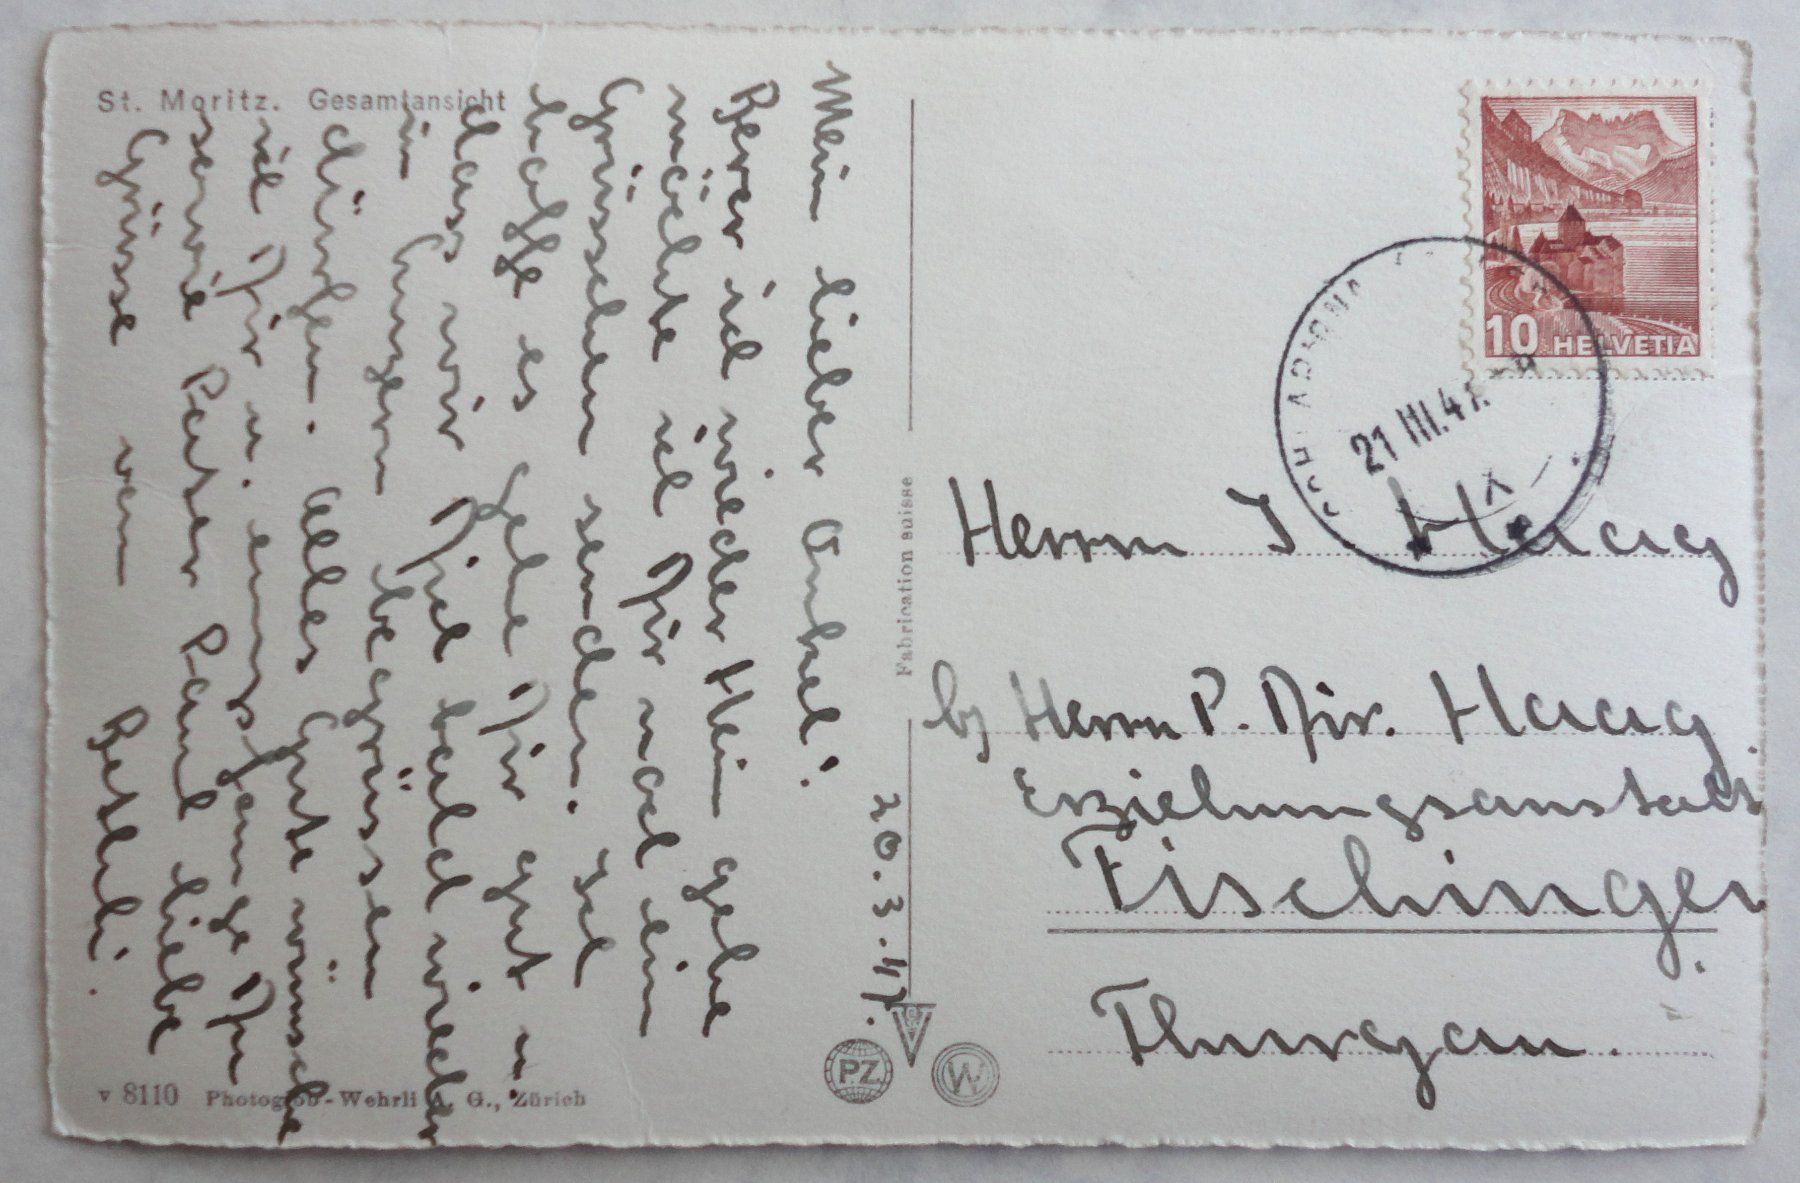 St. Moritz. Gesamtansicht
20.3.47.
Mein lieber Onkel!
Bever ich wieder Hein gehe
möchte ich Dir noch ein
Grüsschen senden. Ich
hoffe es gehe Dir gut u.
dass wir Dich bald wieder
in begrüssen
dürfen. Alles Gute wünsche
ich Dir u. empfange Du
sowie Pater Paul liebe
Grüsse von
v 8110 Photoglob-Wehrli A. G., Zürich
Fabrication suisse
PZ
W
10 HELVETIA
21 III.47
Herrn J Haag
b/ Herrn P. Dir. Haag.
Erziehungsanstalt
Fischingen
Thurgau.